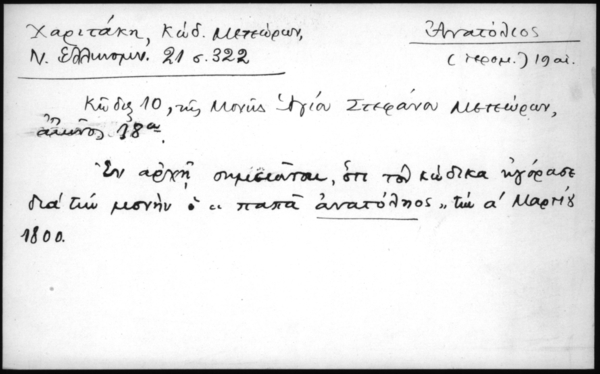 Χαριτάκη, Κώδ. Μετεώρων,
Ν. Ελληνομν. 21 σ. 322
Ἀνατόλιος
(ἱερομ.) 19 αἰ.
Κῶδιξ 10, τῆς Μονῆς Ἁγίου Στεφάνου Μετεώρων,
18ου.
Ἐν ἀρχῇ σημειοῦται, ὅτι τὸν κώδικα ἠγόρασε
διὰ τὴν μονὴν ὁ «παπᾶ ἀνατόλησ» τὴν α' Μαρτίου
1800.